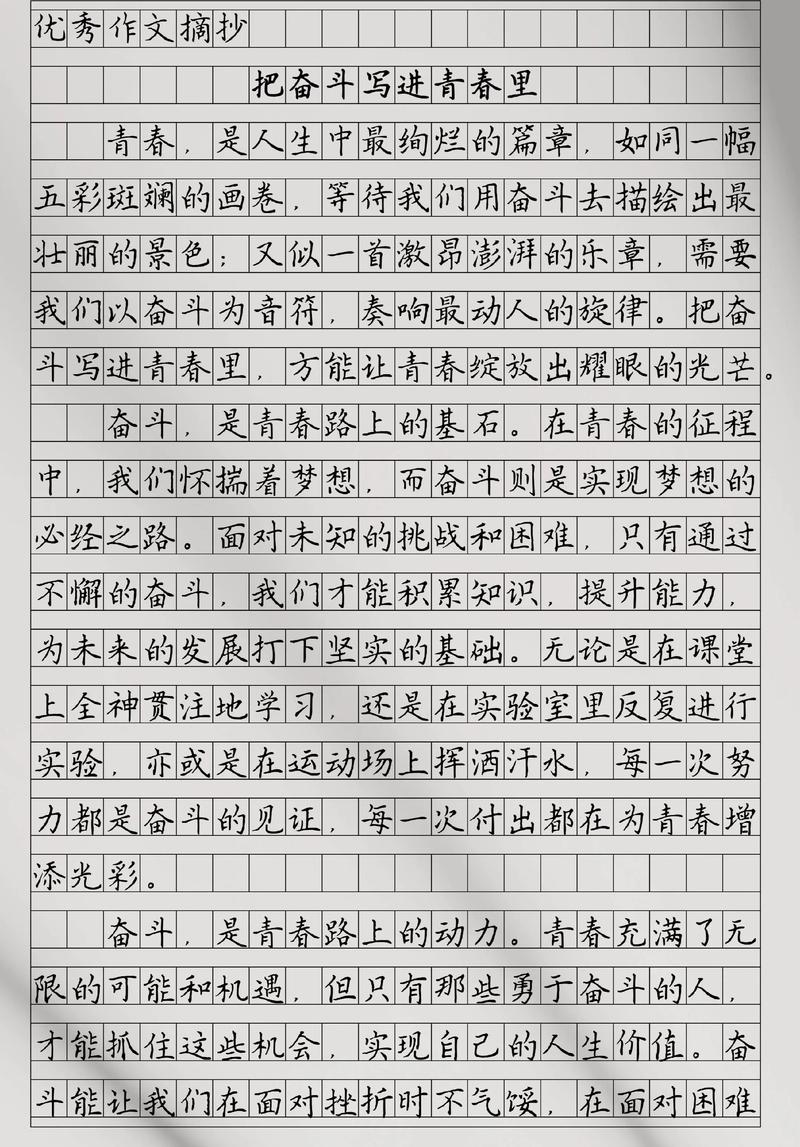 优秀作文摘抄
把奋斗写进青春里
青春，是人生中最绚烂的篇章，如同一幅
五彩斑斓的画卷，等待我们用奋斗去描绘出最
壮丽的景色；又似一首激昂澎湃的乐章，需要
我们以奋斗为音符，奏响最动人的旋律。把奋
斗写进青春里，方能让青春绽放出耀眼的光芒。
奋斗，是青春路上的基石。在青春的征程
中，我们怀揣着梦想，而奋斗则是实现梦想的
必经之路。面对未知的挑战和困难，只有通过
不懈的奋斗，我们才能积累知识，提升能力，
为未来的发展打下坚实的基础。无论是在课堂
上全神贯注地学习，还是在实验室里反复进行
实验，亦或是在运动场上挥洒汗水，每一次努
力都是奋斗的见证，每一次付出都在为青春增
添光彩。
奋斗，是青春路上的动力。青春充满了无
限的可能和机遇，但只有那些勇于奋斗的人，
才能抓住这些机会，实现自己的人生价值。奋
斗能让我们在面对挫折时不气馁，在面对困难